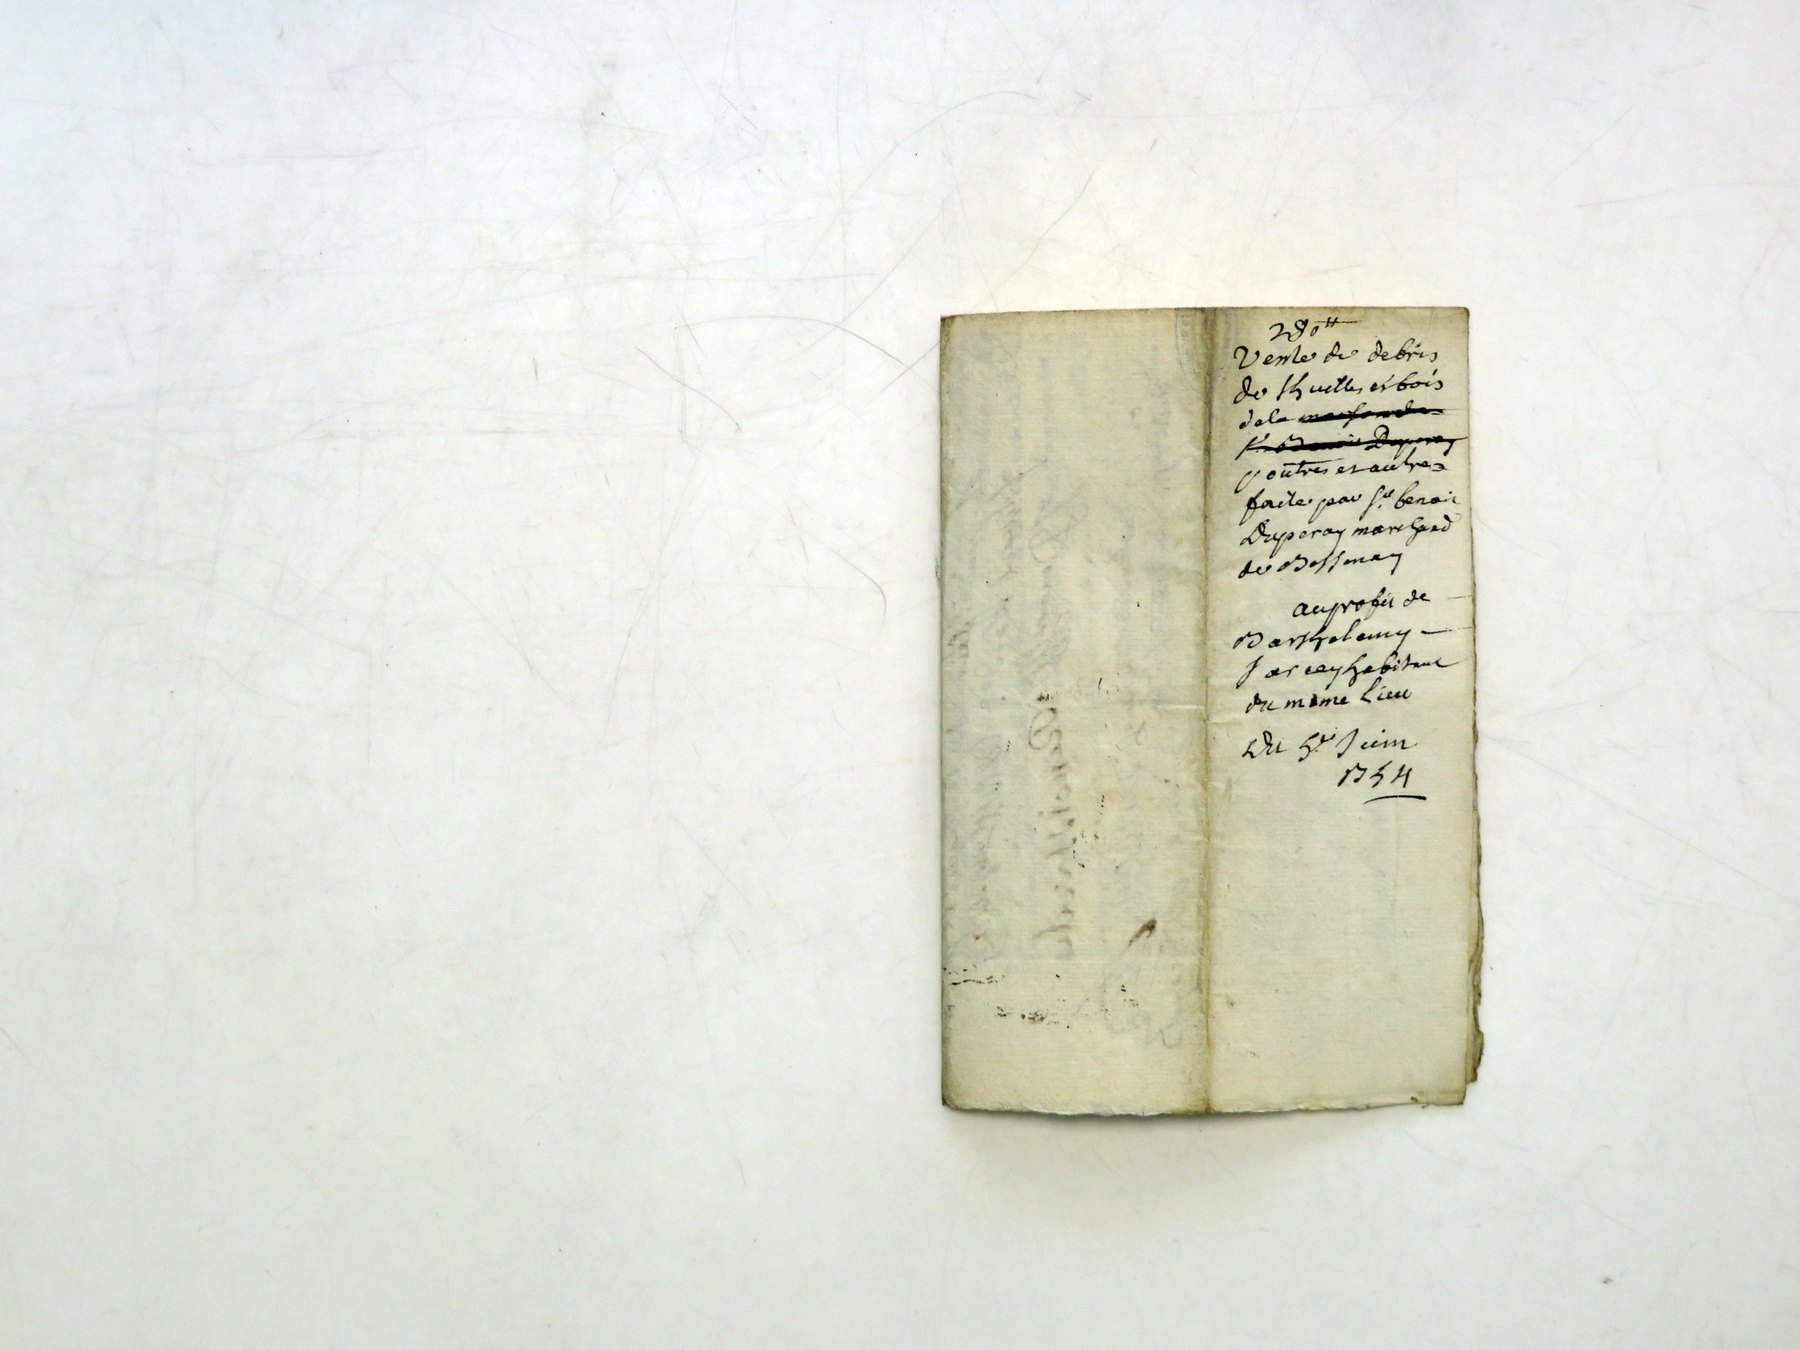 280ᵗᵗ
Vente de debris
de thuilles et bois
dela maison de
sʳ Benoit Duperay
poutres et autres
faite par sʳ benoit
Duperay marchand
de Bessenay
au profit de
Barthelemy
habitant
du meme Lieu
Du 5ᵉ Juin
1754